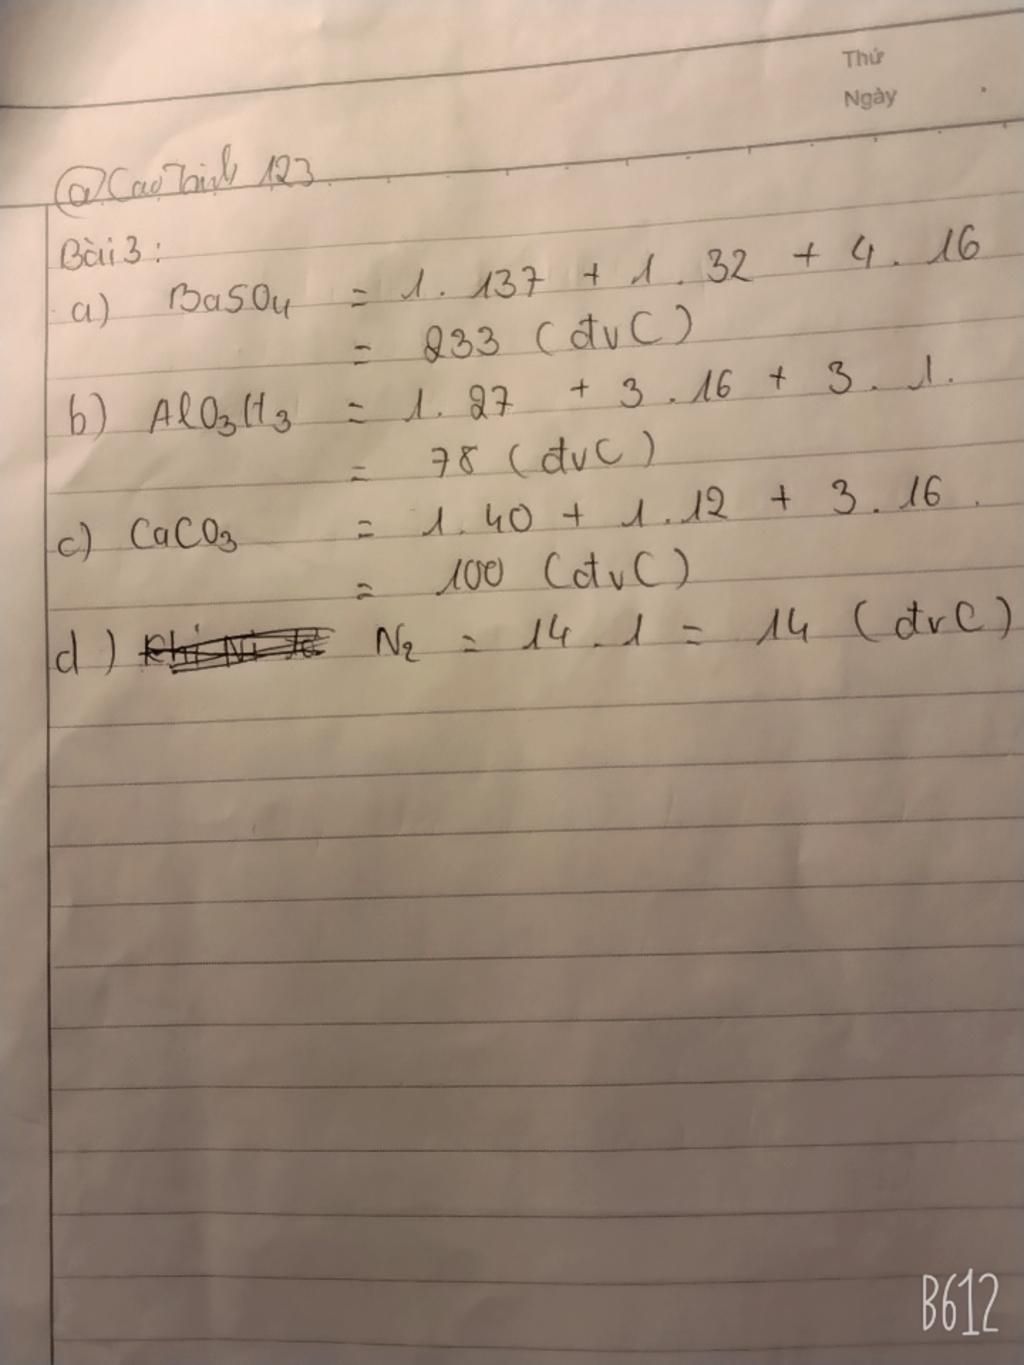 Thứ
Ngày
@CaoTrinh 123
Bài 3:
a) BaSO4 = 1. 137 + 1. 32 + 4. 16
= 233 (đvC)
b) AlO3H3 = 1. 27 + 3. 16 + 3. 1.
= 78 (đvC)
c) CaCO3 = 1. 40 + 1. 12 + 3. 16.
= 100 (đvC)
d) N2 = 14. 1 = 14 (đvC)
B612